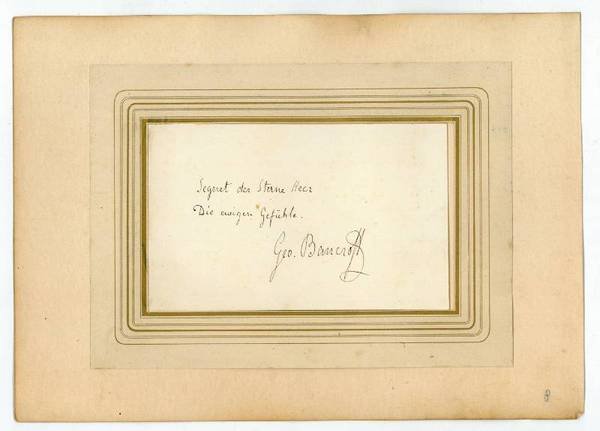 Segnet der Sterne Heer
Die ewigen Gefühle.
Geo. Bancroft
8